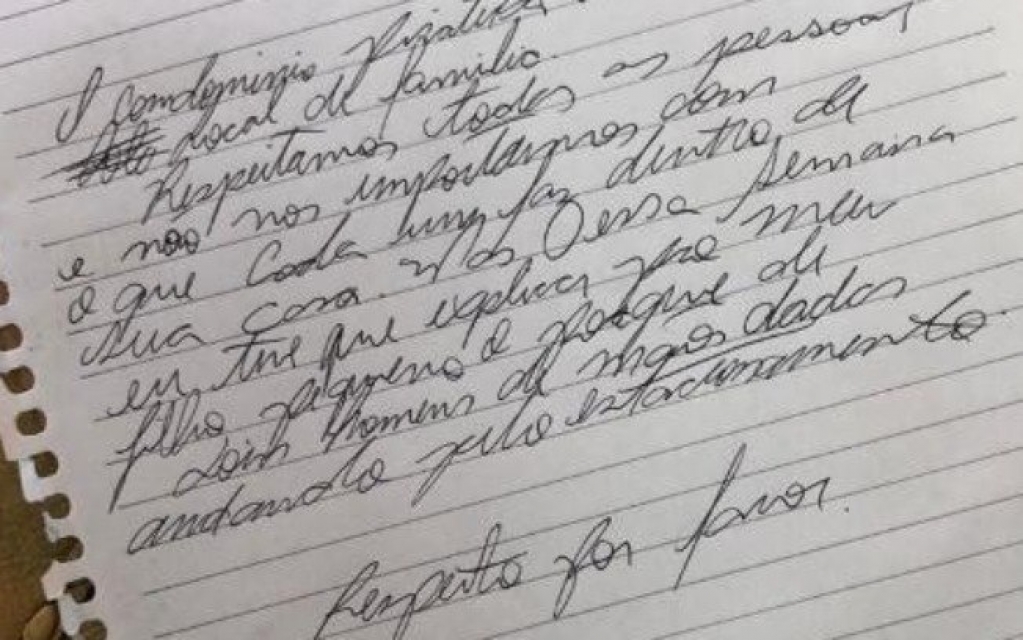 O condomínio
local de família.
Respeitamos todas as pessoas
e não nos importamos com
o que cada um faz dentro de
sua casa. Mas essa semana
eu tive que explicar pro meu
filho pequeno o porque de
dois homens de mãos dadas
andando pelo estacionamento.
Respeito por favor.